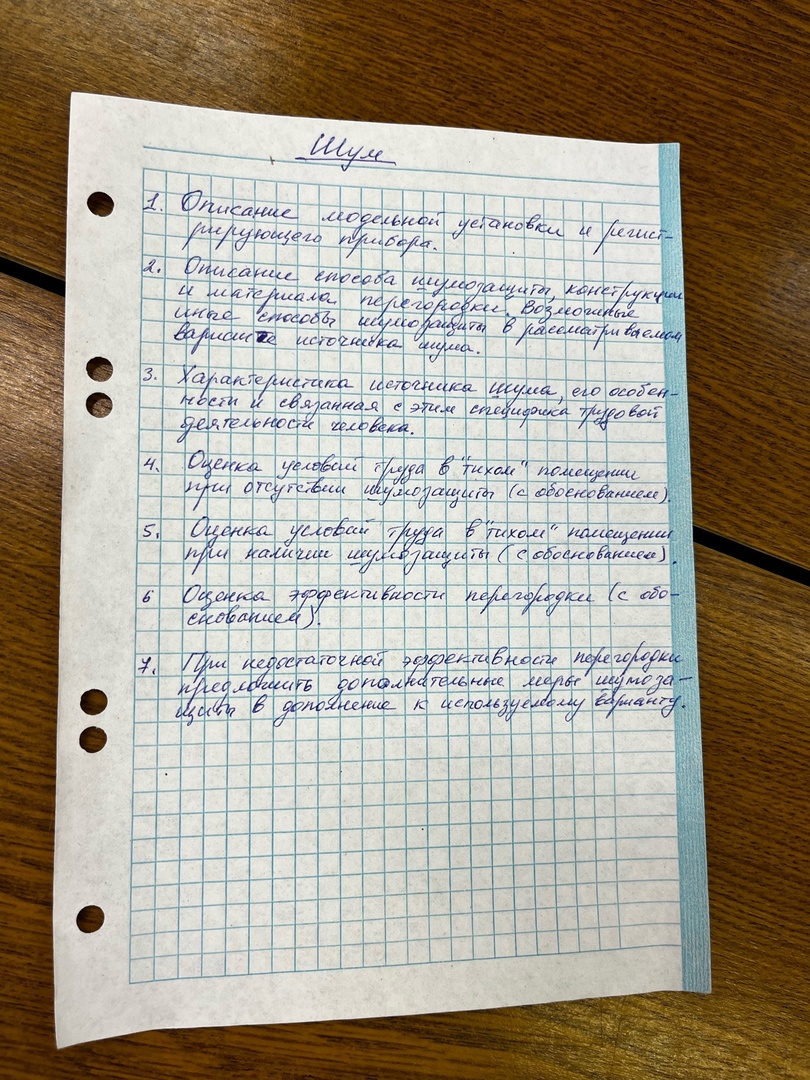 Шум
1. Описание модельной установки и регист-
рирующего прибора.
2. Описание способа шумозащиты, конструкции
и материала перегородки. Возможные
иные способы шумозащиты в рассматриваемом
варианте источника шума.
3. Характеристика источника шума, его особен-
ности и связанная с этим специфика трудовой
деятельности человека.
4. Оценка условий труда в "тихом" помещении
при отсутствии шумозащиты (с обоснованием).
5. Оценка условий труда в "тихом" помещении
при наличии шумозащиты (с обоснованием).
6 Оценка эффективности перегородки (с обо-
снованием).
7. При недостаточной эффективности перегородки
предложить дополнительные меры шумоза-
щиты в дополнение к используемому варианту.